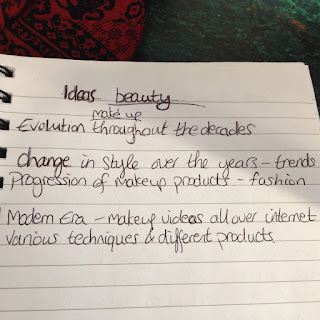 Ideas beauty
make up
Evolution throughout the decades
Change in style over the years - trends
Progression of makeup products - fashion
Modern Era - makeup videos all over internet
various techniques & different products